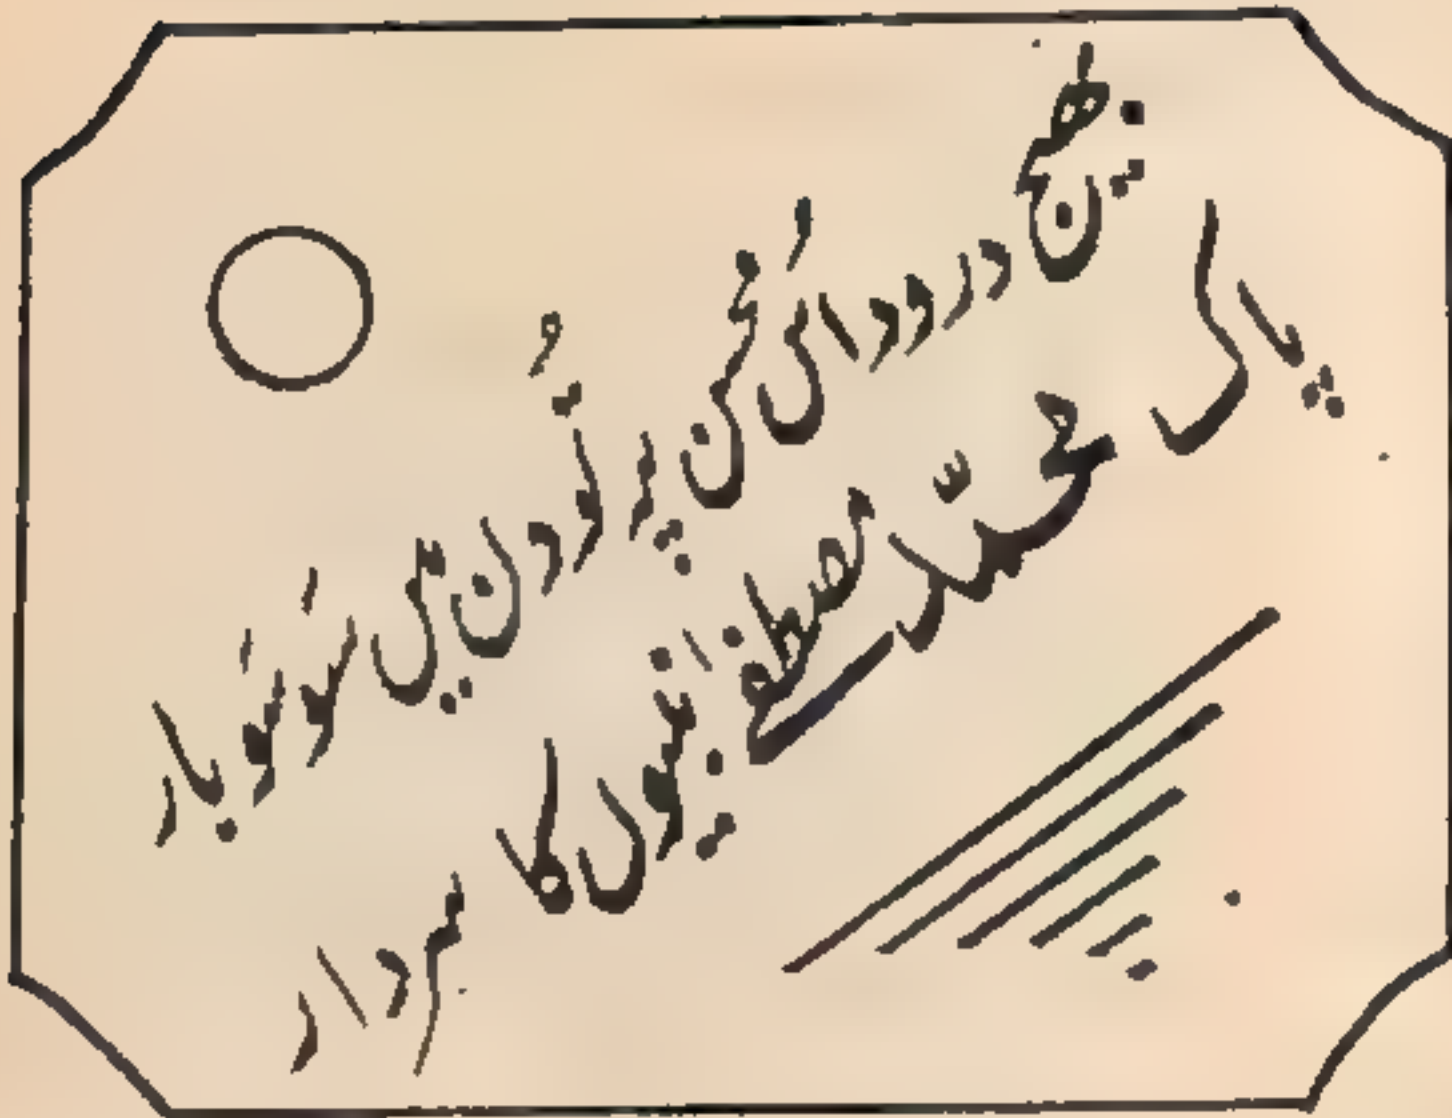 بھیج درود اُس مُحسن پر تُو دن میں سَو سَو بار
پاک محمّد مصطفےٰ نبیوں کا سردار